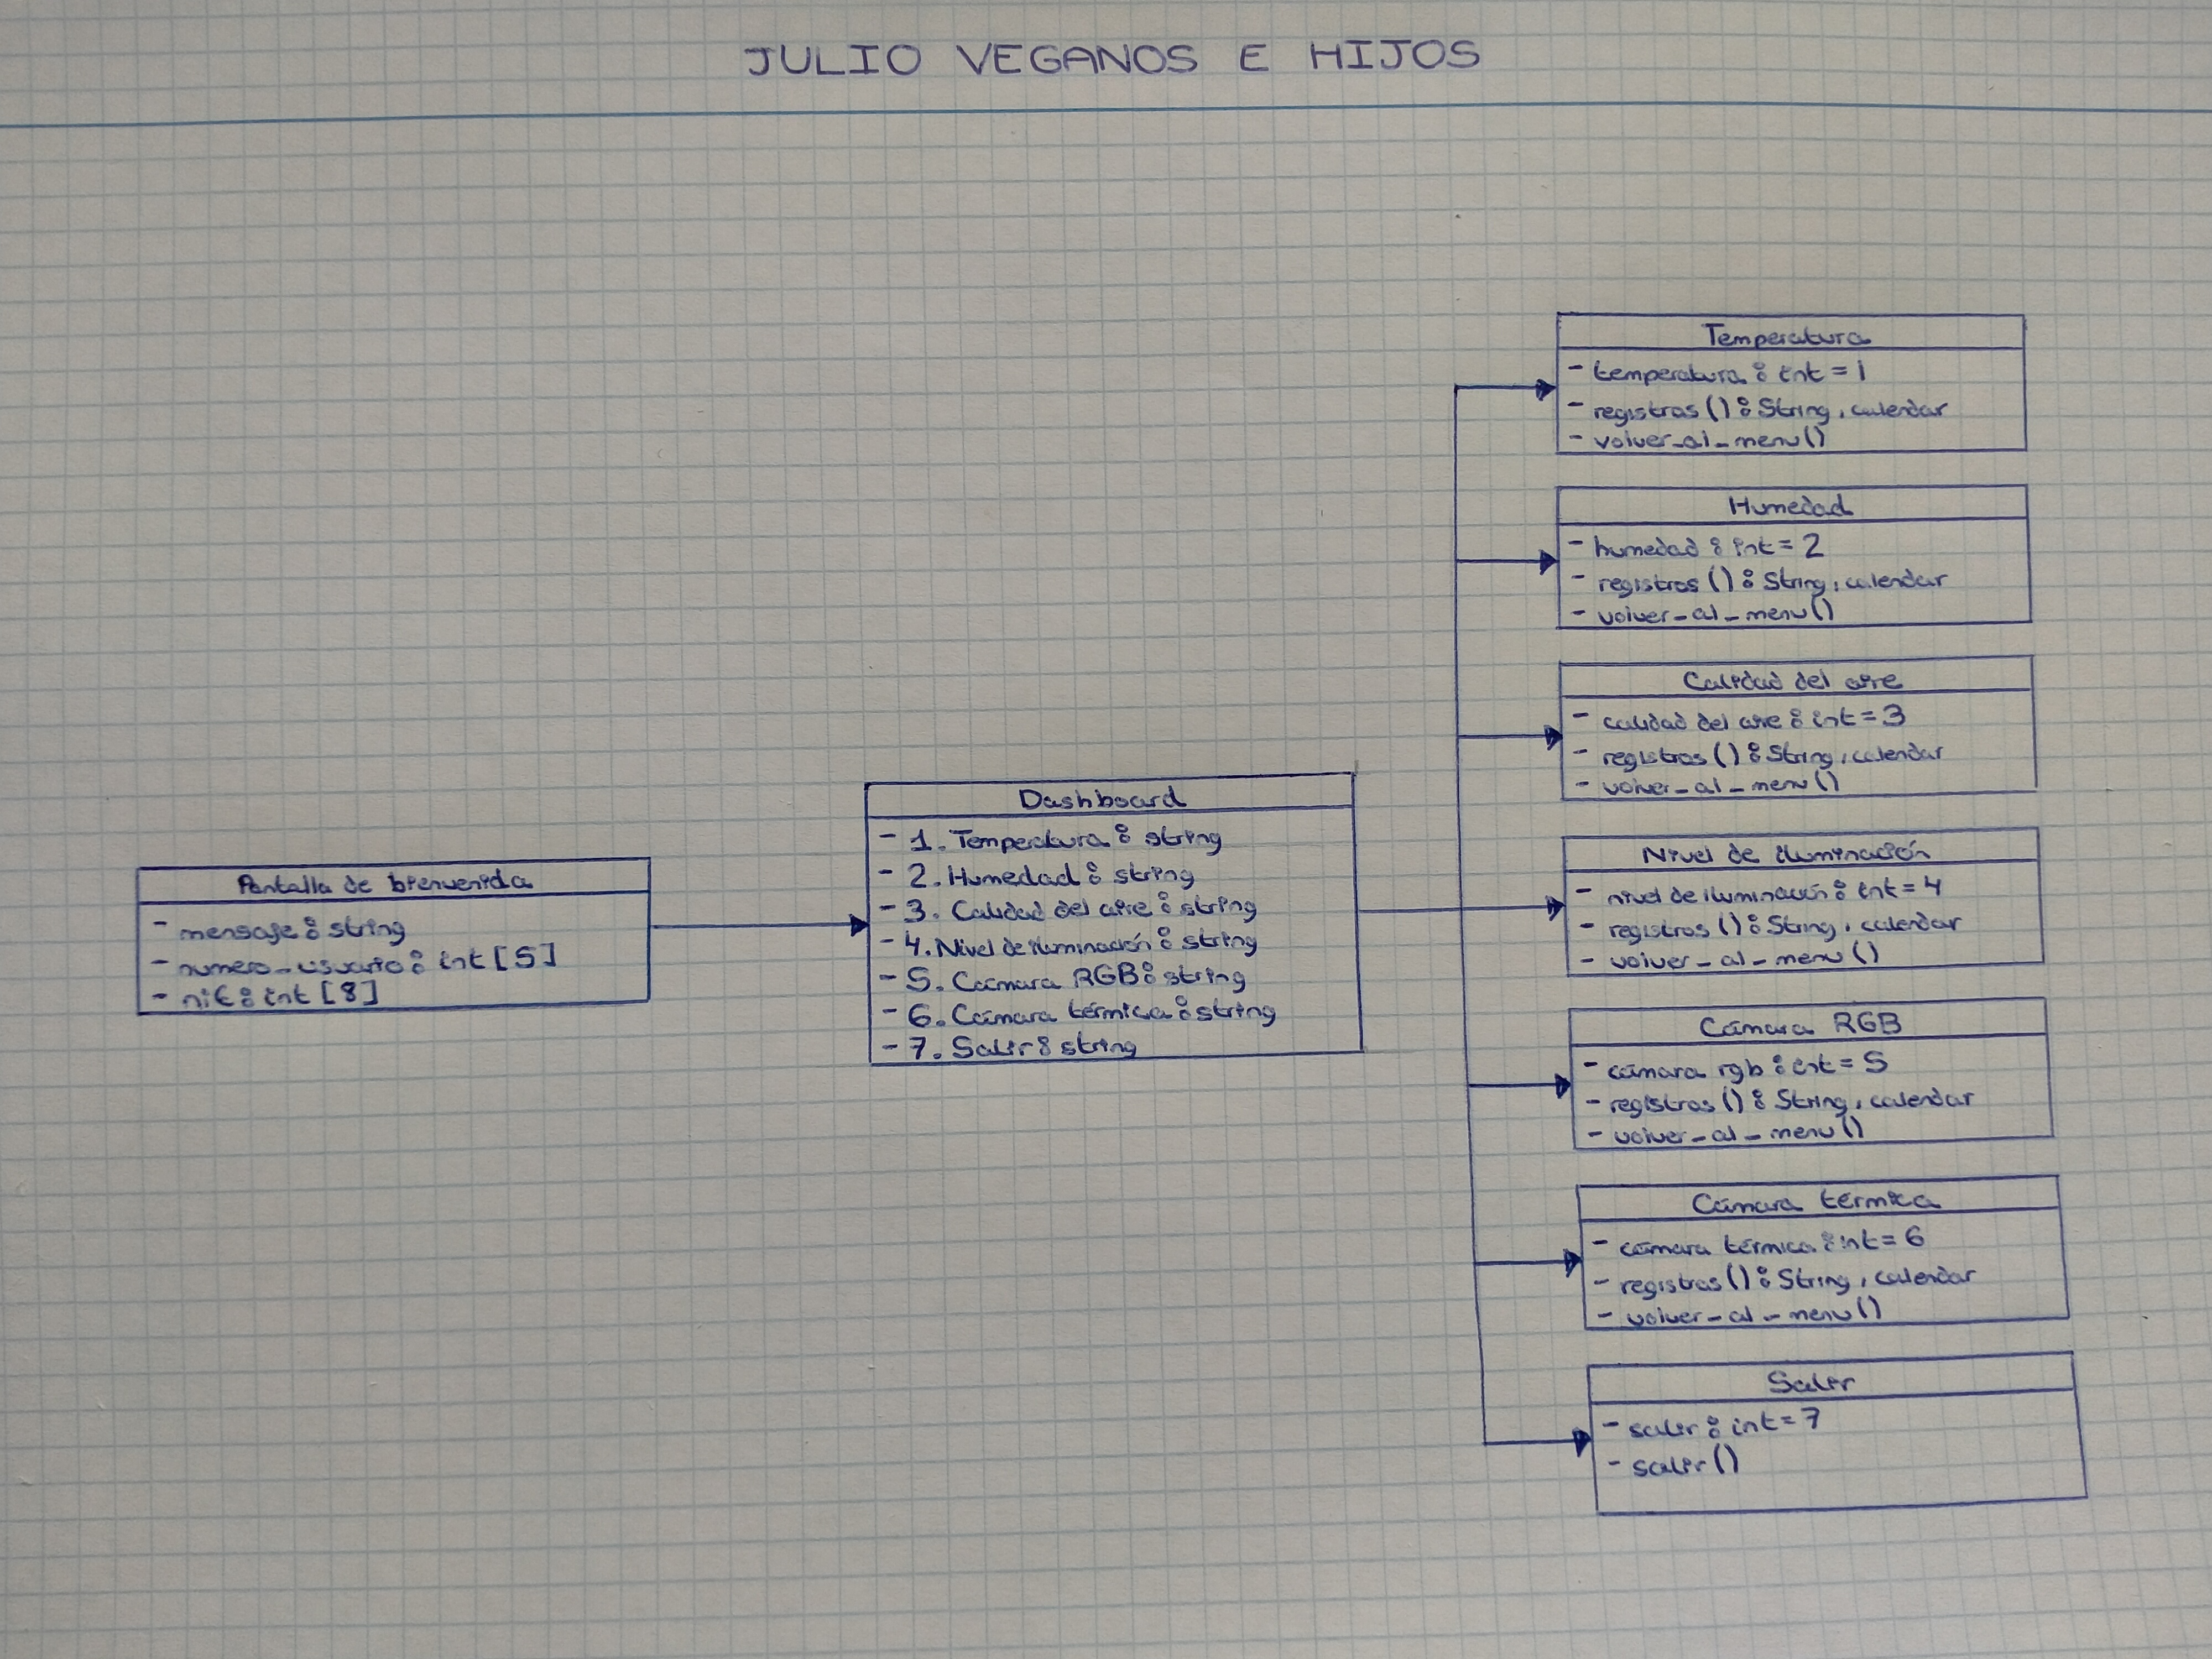 JULIO VEGANOS E HIJOS
Pantalla de bienvenida
- mensaje : string
- numero_usuario : int [5]
- nif : int [8]
Dashboard
- 1. Temperatura : string
- 2. Humedad : string
- 3. Calidad del aire : string
- 4. Nivel de iluminación : string
- 5. Cámara RGB : string
- 6. Cámara térmica : string
- 7. Salir : string
Temperatura
- temperatura : int = 1
- registros () : String, calendar
- volver_al_menu()
Humedad
- humedad : int = 2
- registros () : String, calendar
- volver_al_menu()
Calidad del aire
- calidad del aire : int = 3
- registros () : String, calendar
- volver_al_menu()
Nivel de iluminación
- nivel de iluminación : int = 4
- registros () : String, calendar
- volver_al_menu()
Cámara RGB
- cámara rgb : int = 5
- registros () : String, calendar
- volver_al_menu()
Cámara térmica
- cámara térmica : int = 6
- registros () : String, calendar
- volver_al_menu()
Salir
- salir : int = 7
- salir()